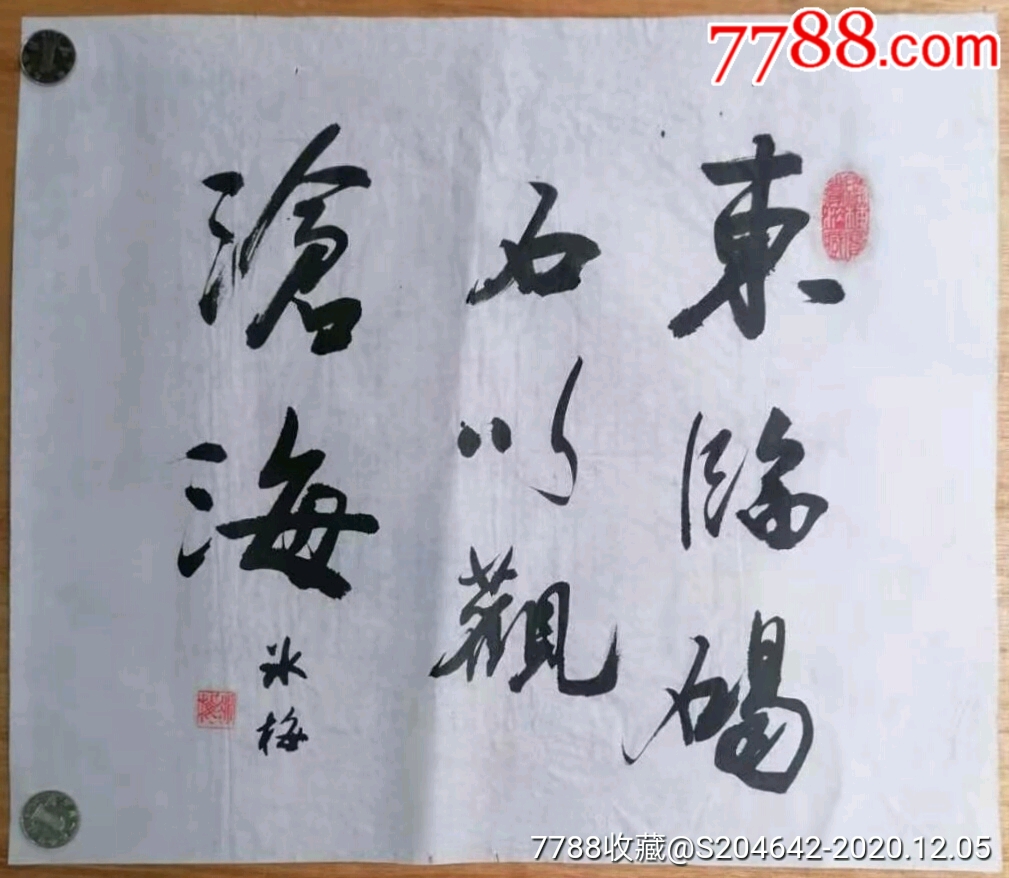 7788.com
東臨碣
石以觀
滄海
冰梅
7788收藏@S204642-2020.12.05